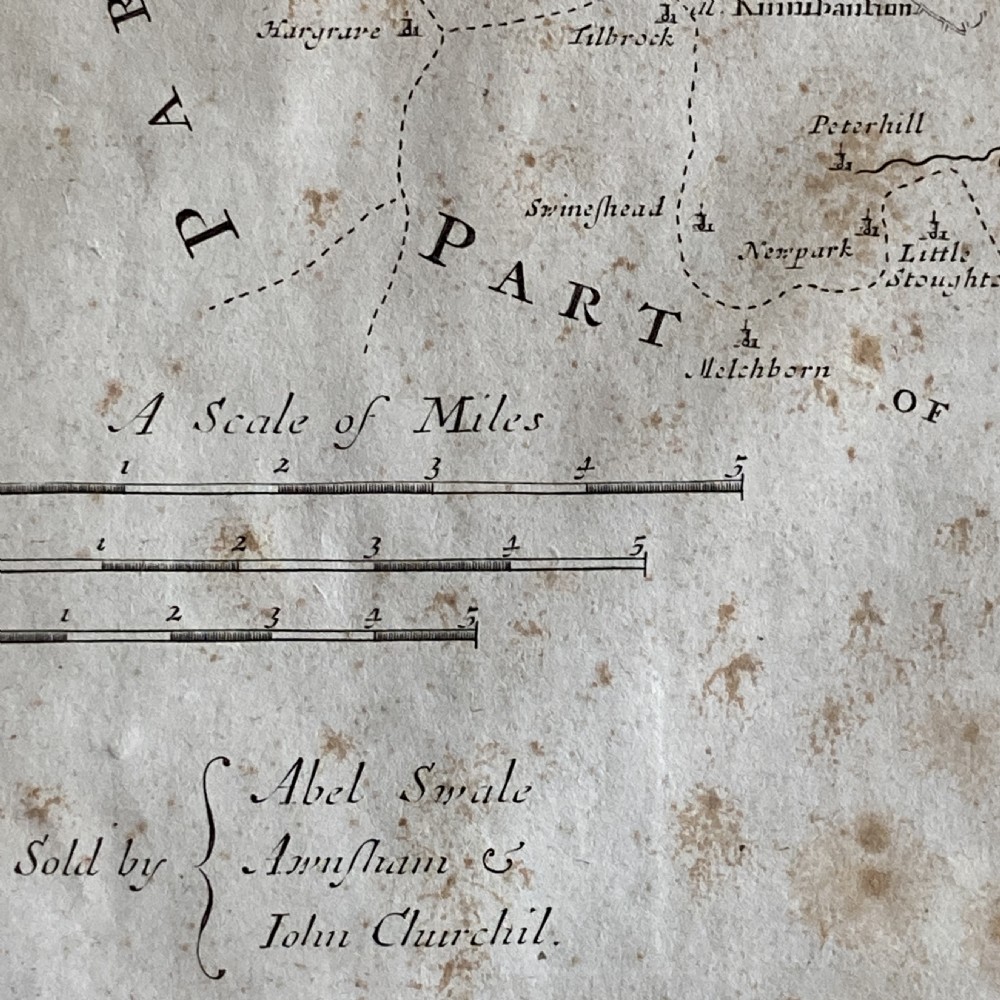 Hargrave
Tilbrock
al. Kinnibantion
PAR
Peterhill
Swineshead
Newpark
Little
Stoughto
PART
Melchborn
OF
A Scale of Miles
1 2 3 4 5
1 2 3 4 5
1 2 3 4 5
Sold by
Abel Swale
Awnſham &
Iohn Churchil.